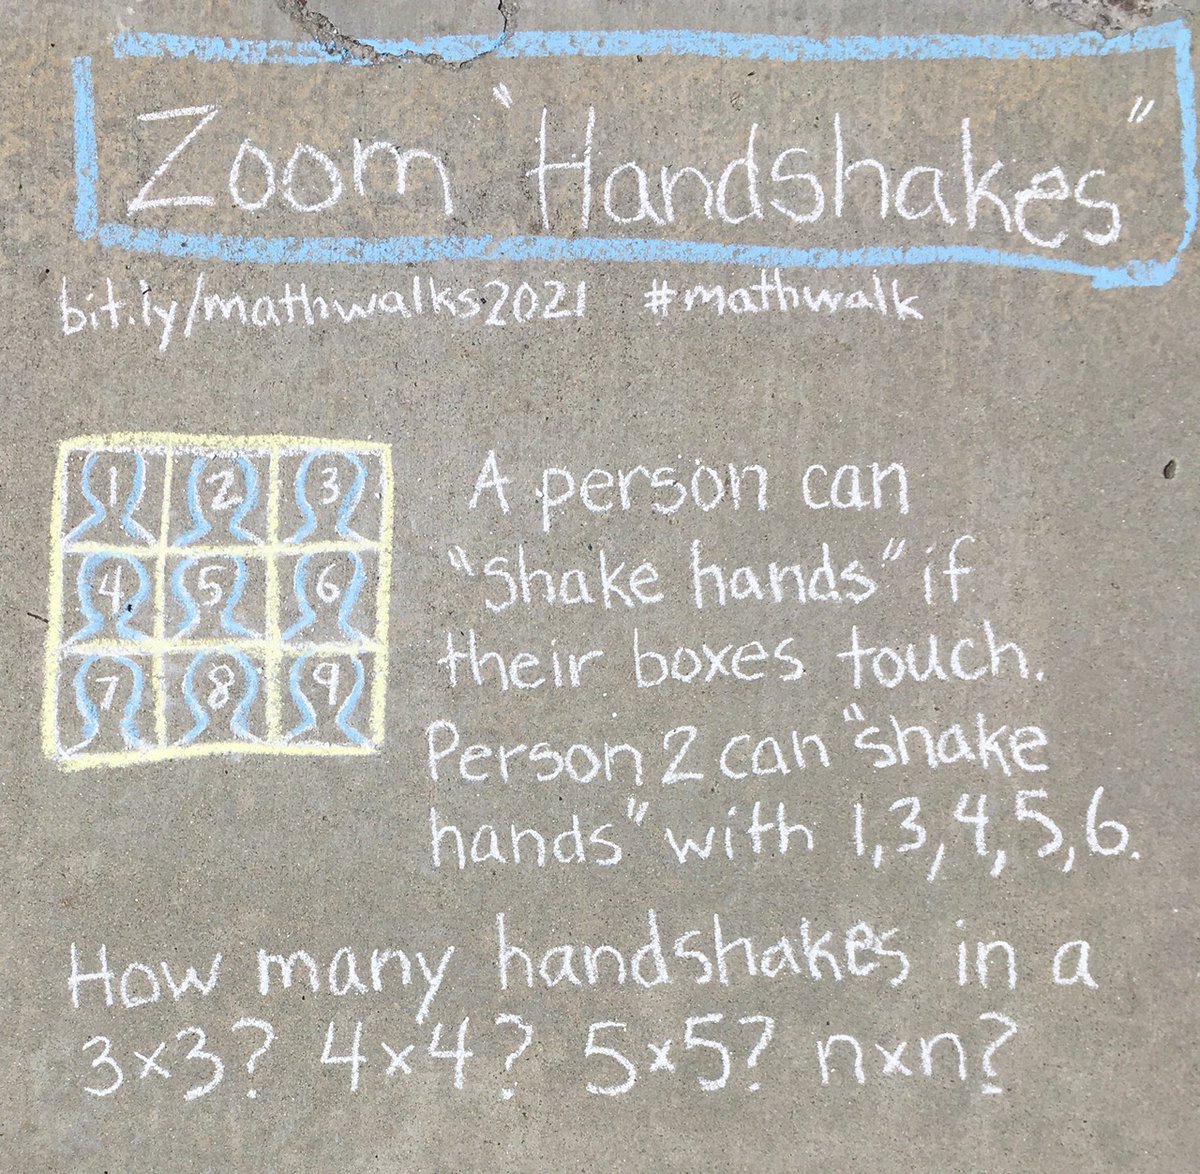 Zoom "Handshakes"
bit.ly/mathwalks2021 #mathwalk
1 2 3
4 5 6
7 8 9
A person can
"shake hands" if
their boxes touch.
Person 2 can "shake
hands" with 1,3,4,5,6.
How many handshakes in a
3×3? 4×4? 5×5? n×n?